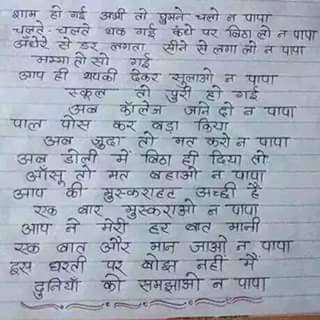 शाम हो गई अभी तो घुमने चलो न पापा
चलते-चलते थक गई कंधे पर बिठा लो न पापा
अँधेरे से डर लगता सीने से लगा लो न पापा
मम्मा तो सो गई
आप ही थपकी देकर सुलाओ न पापा
स्कूल तो पुरी हो गई
अब कॉलेज जाने दो न पापा
पाल पोस कर बड़ा किया
अब जुदा तो मत करो न पापा
अब डोली में बिठा ही दिया तो
आँसू तो मत बहाओ न पापा
आप की मुस्कराहट अच्छी है
एक बार मुस्कराओ न पापा
आप ने मेरी हर बात मानी
एक बात और मान जाओ न पापा
इस धरती पर बोझ नहीं मैं
दुनियाँ को समझाओ न पापा